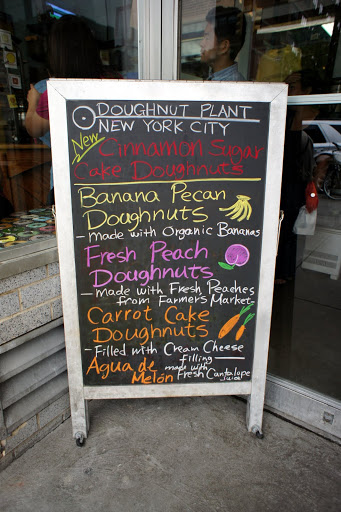 DOUGHNUT PLANT
NEW YORK CITY
New Cinnamon Sugar
Cake Doughnuts
Banana Pecan
Doughnuts
- made with Organic Bananas
Fresh Peach
Doughnuts
- made with Fresh Peaches
from Farmer's Market -
Carrot Cake
Doughnuts
- Filled with Cream Cheese
filling
Agua de made with
Melón Fresh Cantalope
Juice